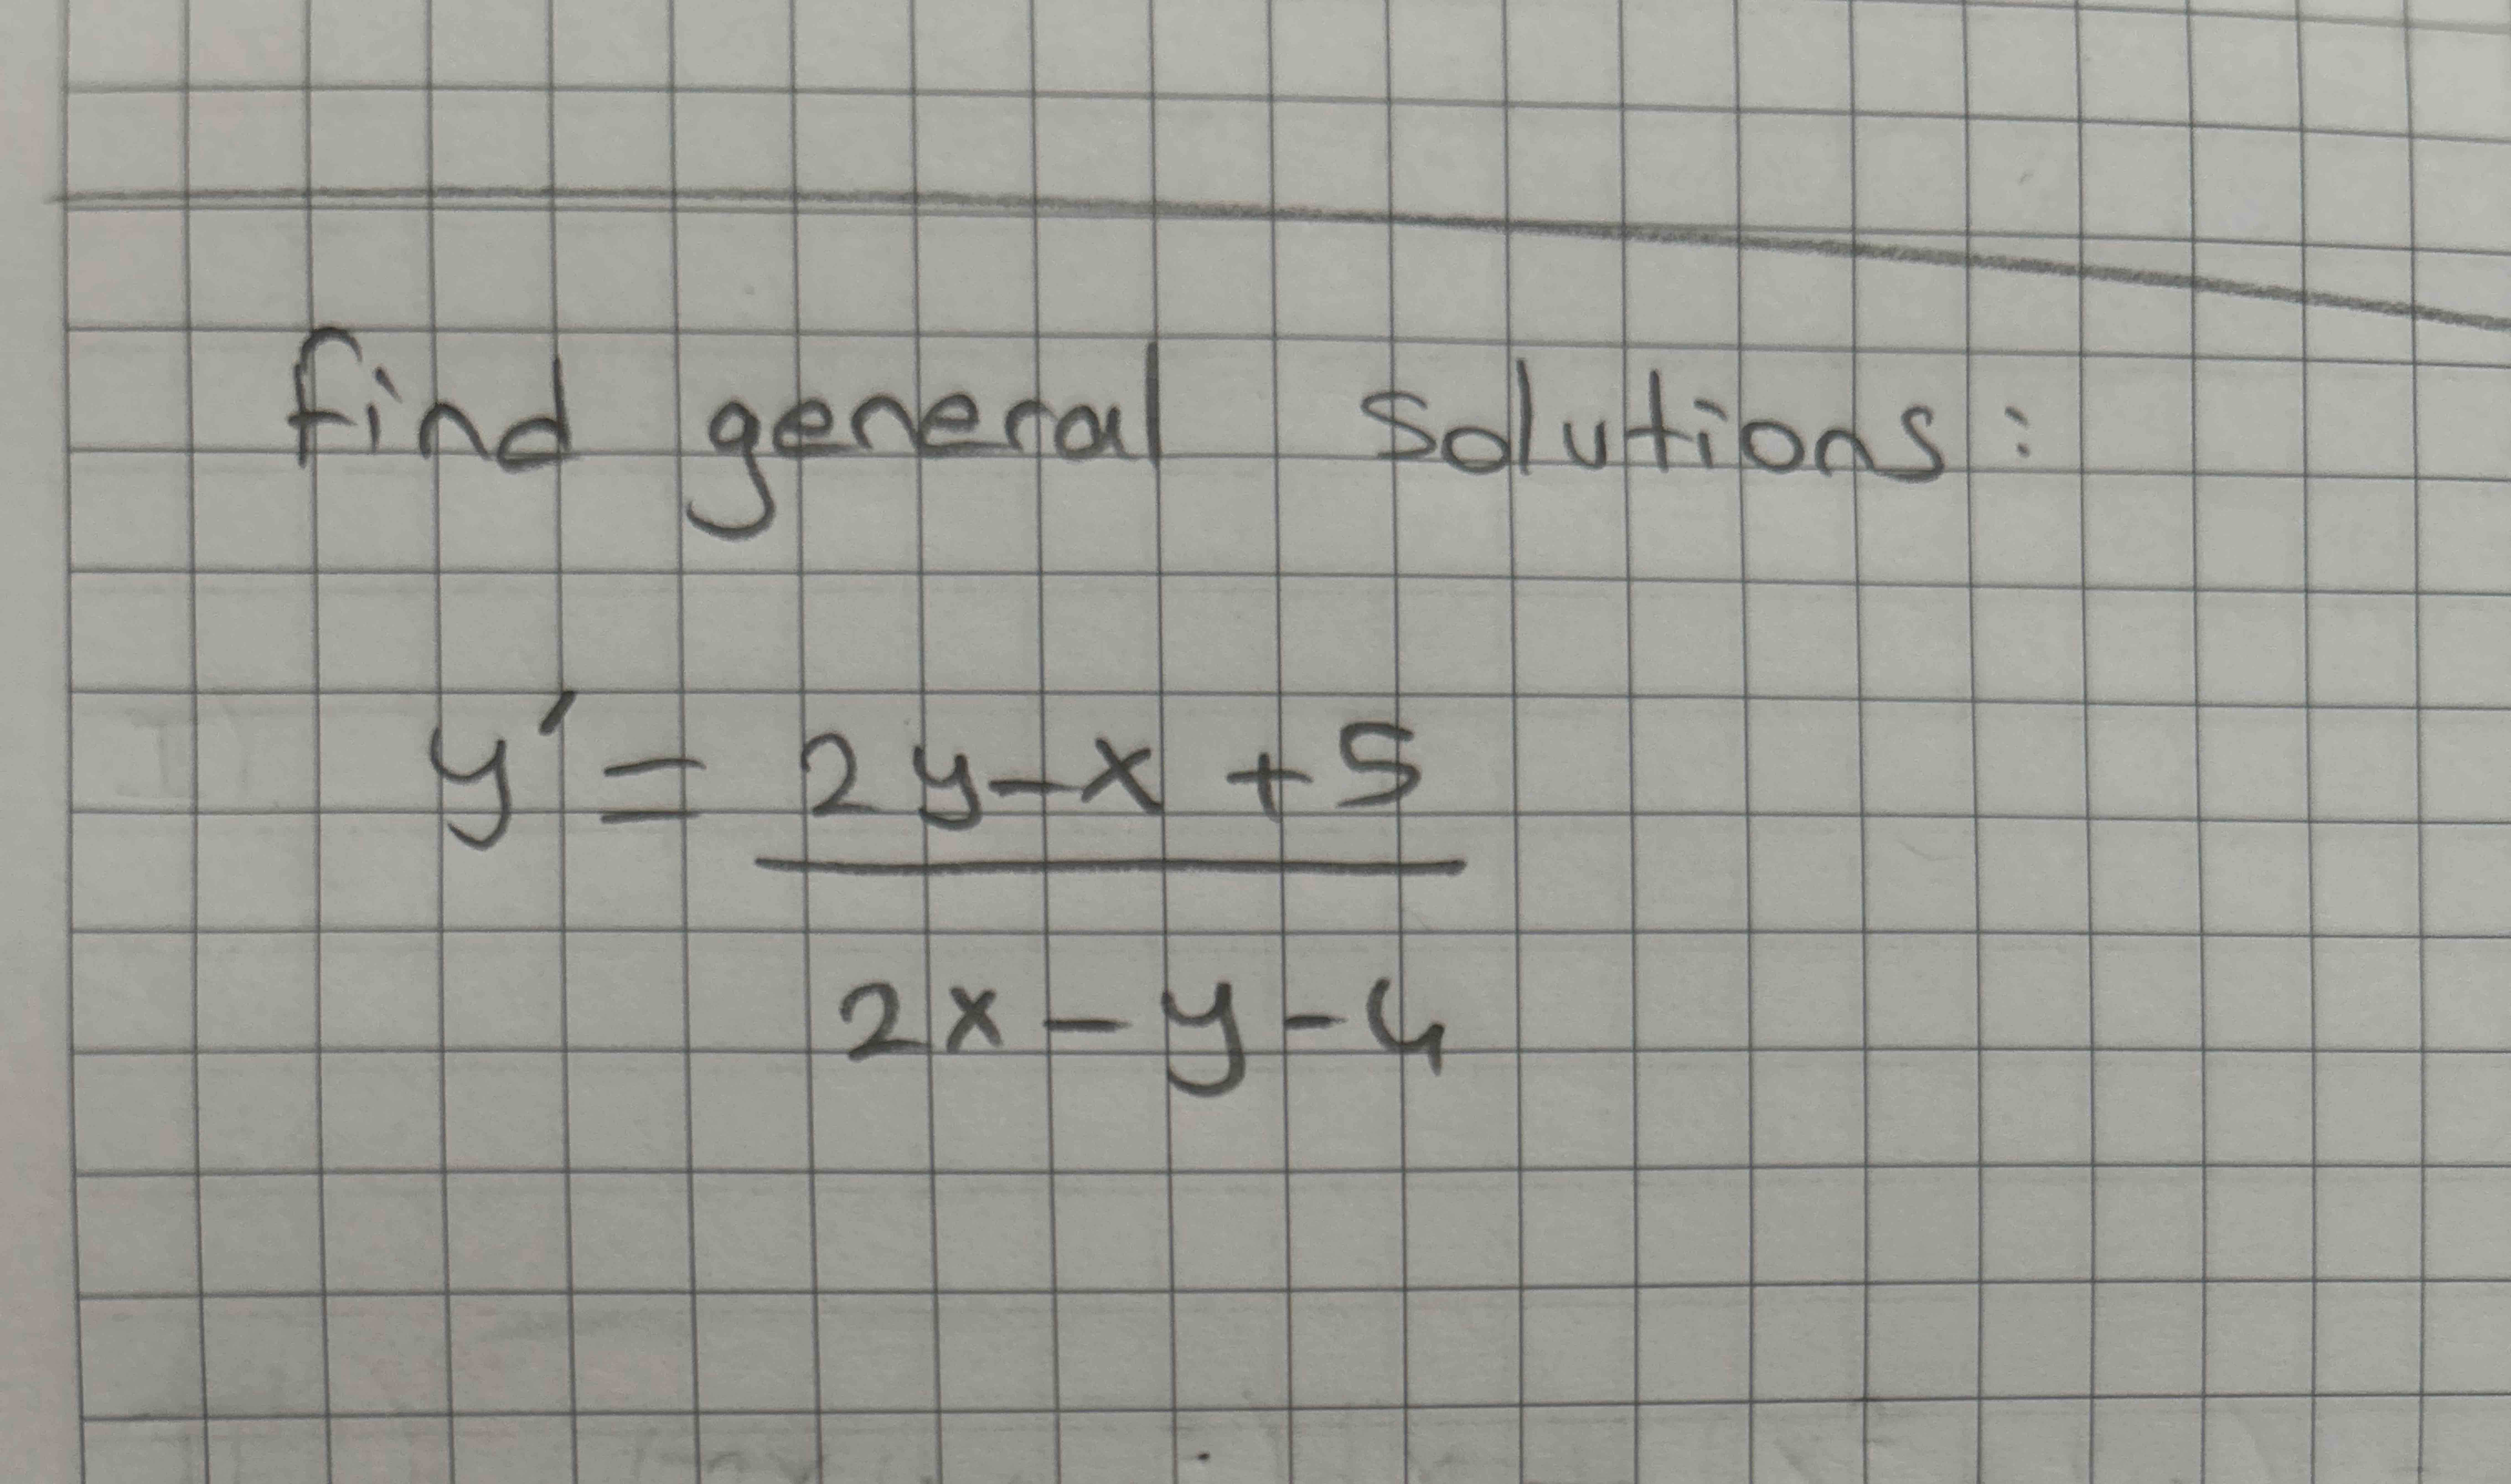 find general solutions:
y' = 2y-x +5
2x - y - 4